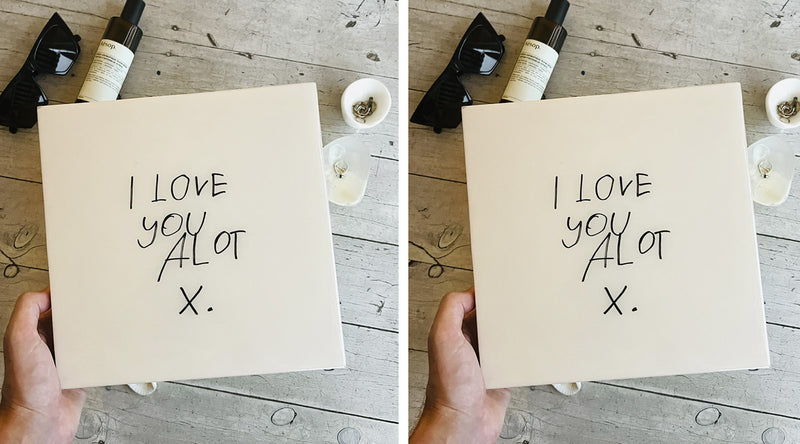 aesop.
I LOVE
YOU
ALOT
X.
aesop.
I LOVE
YOU
ALOT
X.